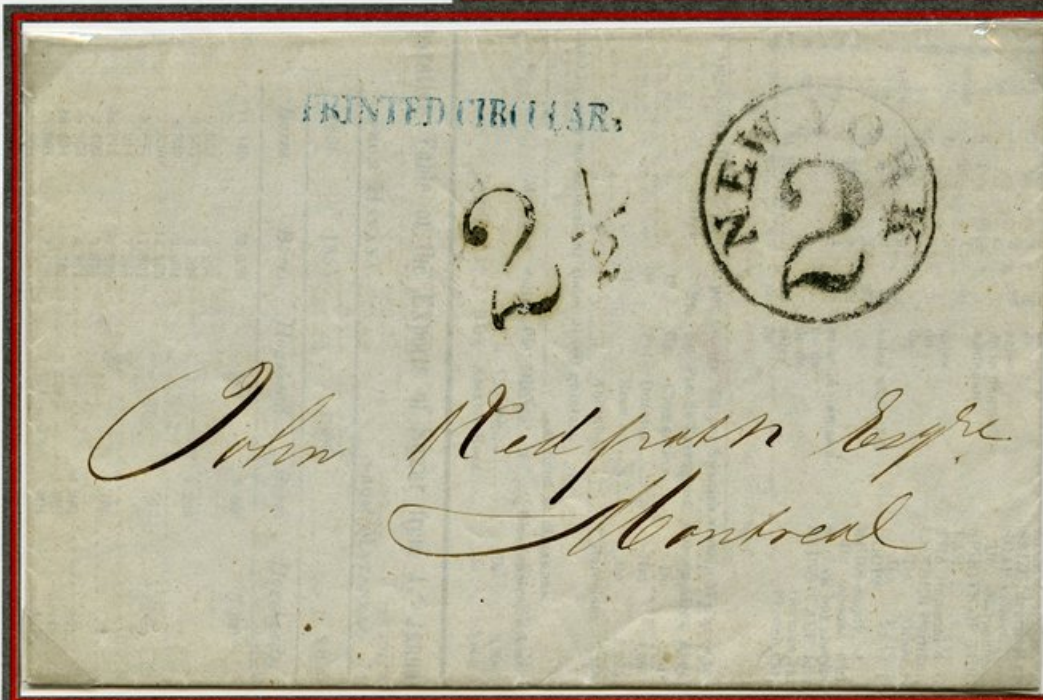 PRINTED CIRCULAR,
NEW YORK
2
2 1/2
John Redpath Esqre
Montreal